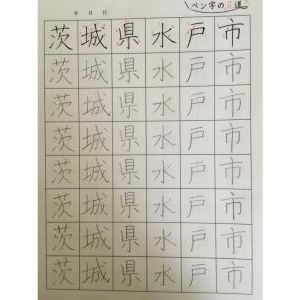 年 月 日
ペン字の道
茨城県水戸市
茨城県水戸市
茨城県水戸市
茨城県水戸市
茨城県水戸市
茨城県水戸市
茨城県水戸市
茨城県水戸市